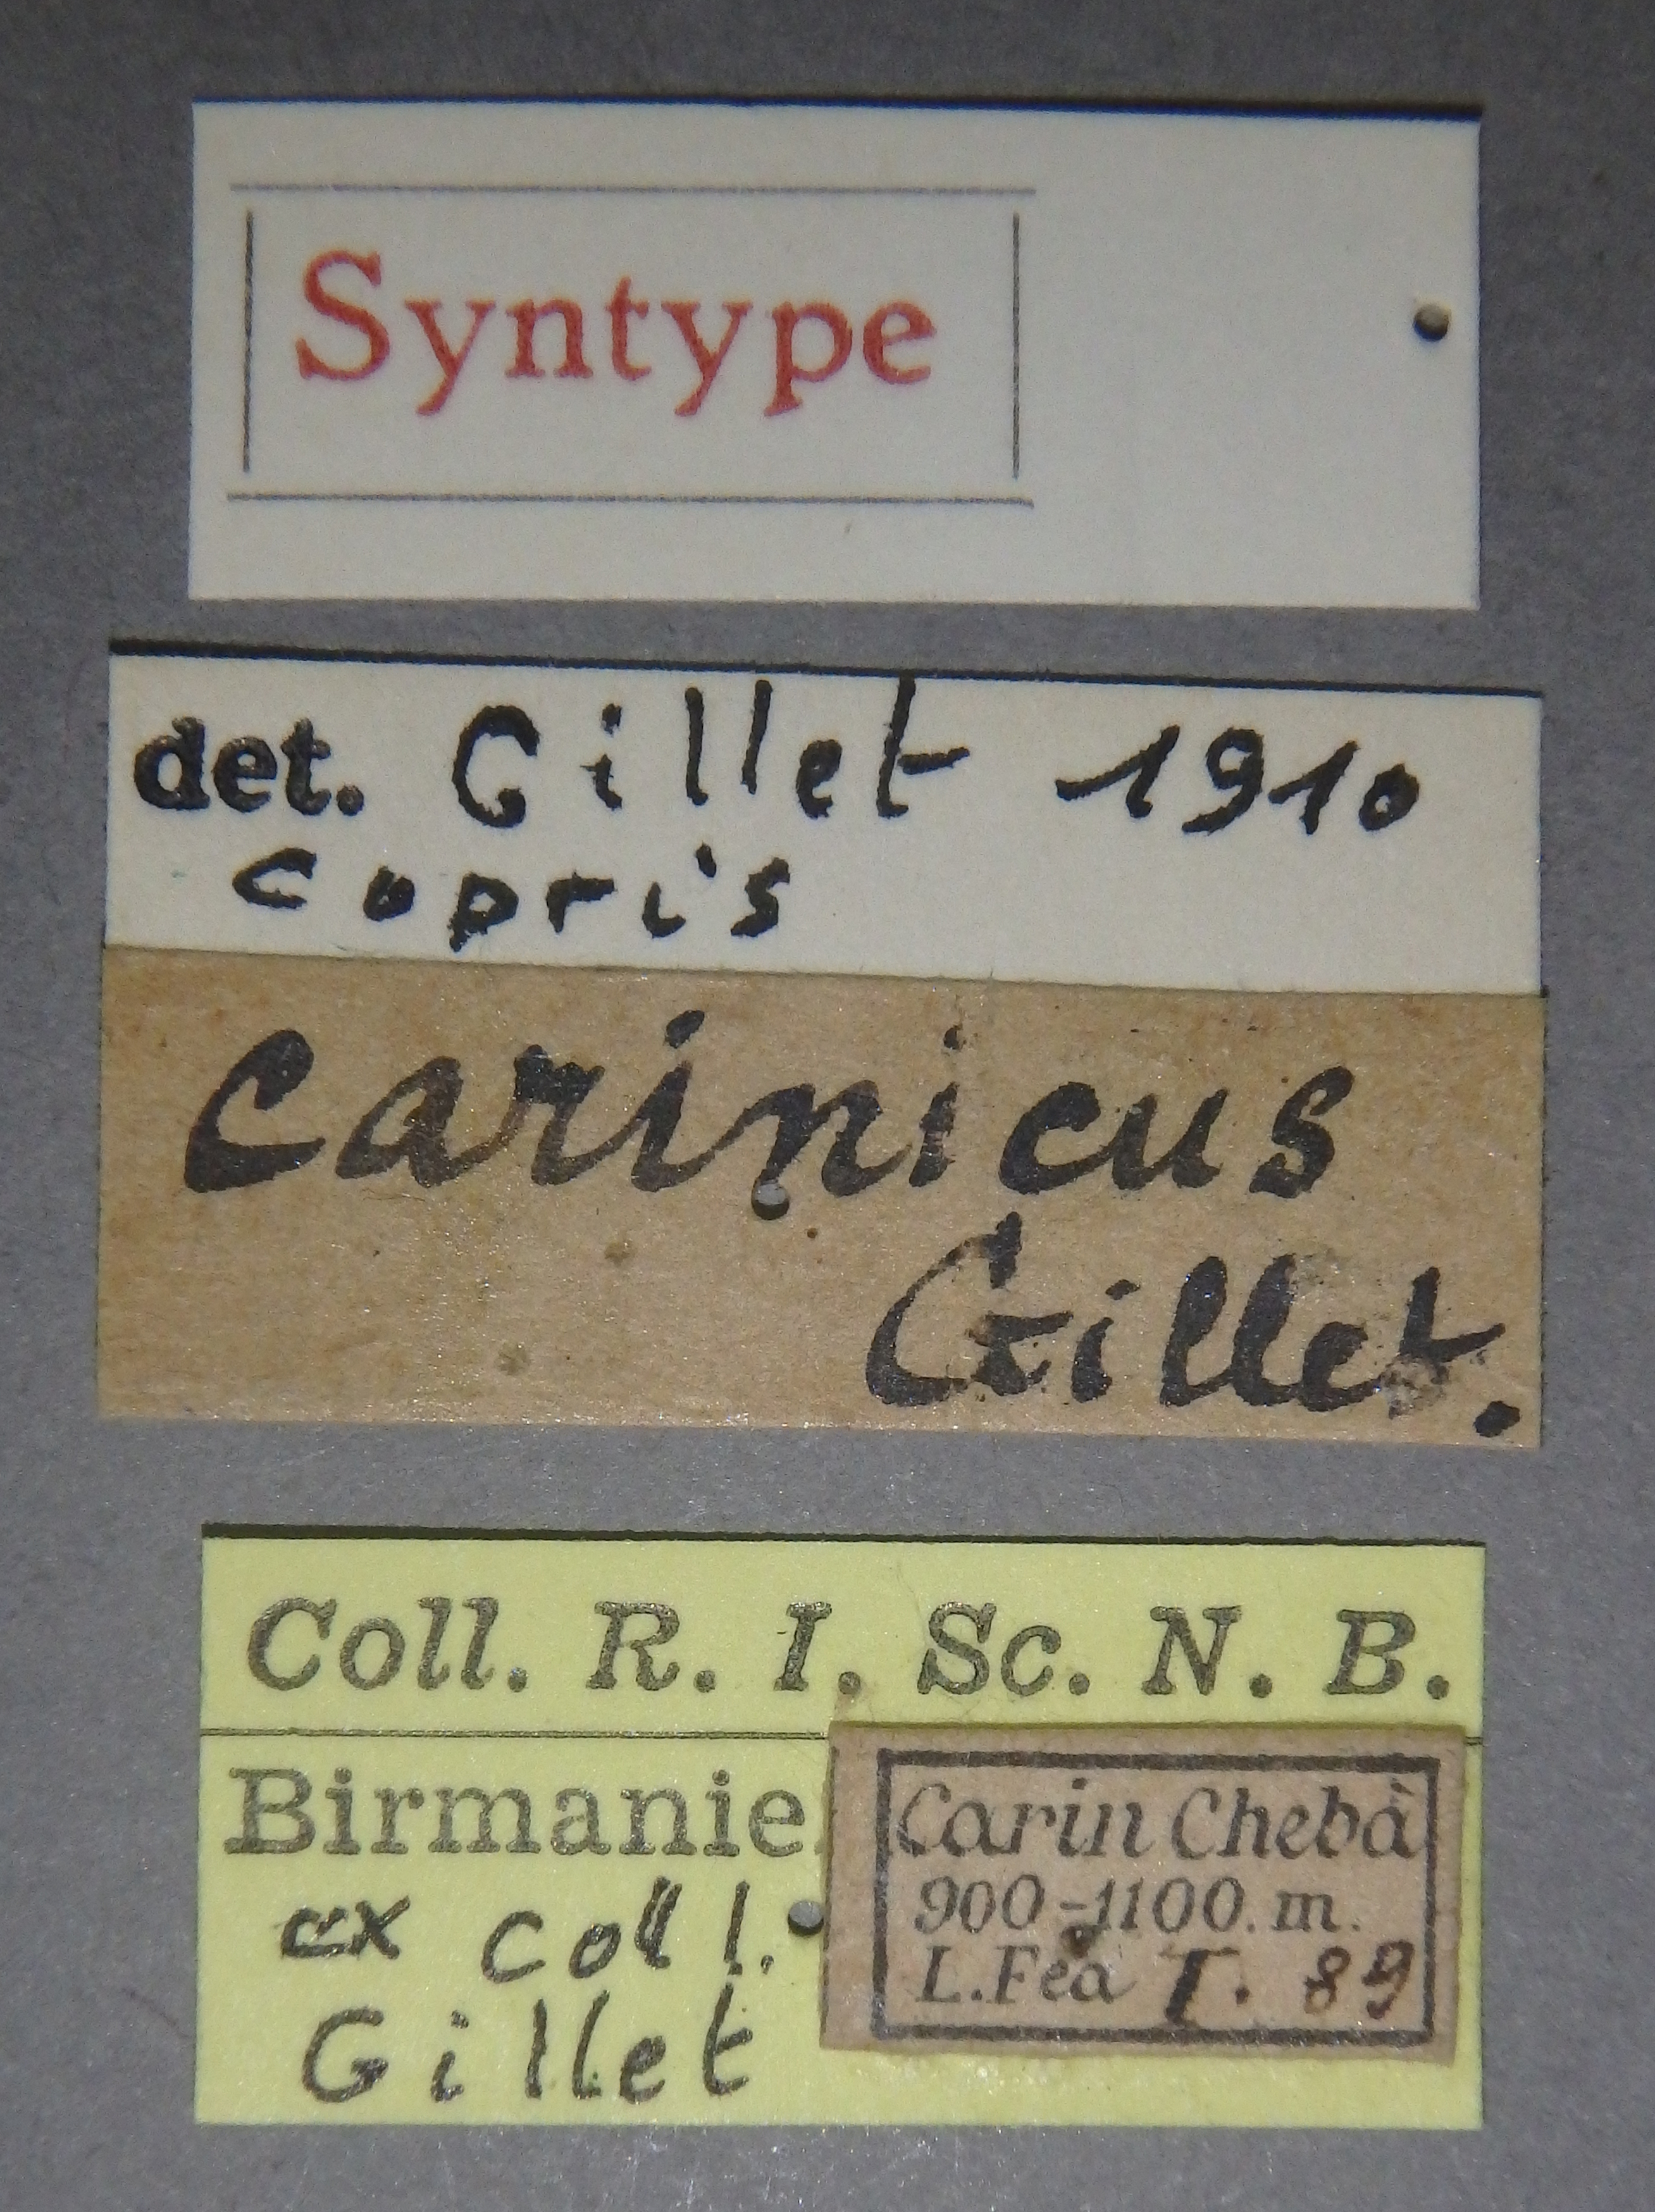 Syntype
det. Gillet 1910
copris
carinicus
Gillet.
Coll. R. I. Sc. N. B.
Birmanie
ex coll.
Gillet
Carin Chebà
900-1100. m.
L. Fea I. 89